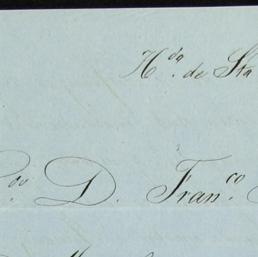 H.da de Sta
D. Fran.co